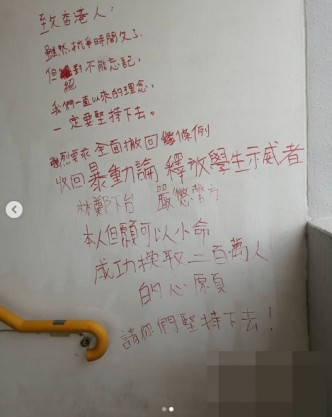 致香港人：
雖然抗爭時間久了，
但絕對不能忘記，
我們一直以來的理念，
一定要堅持下去。
強烈要求全面撤回條例
收回暴動論 釋放學生示威者
林鄭下台 嚴懲警方
本人但願可以小命
成功換取二百萬人
的心願
請你們堅持下去！